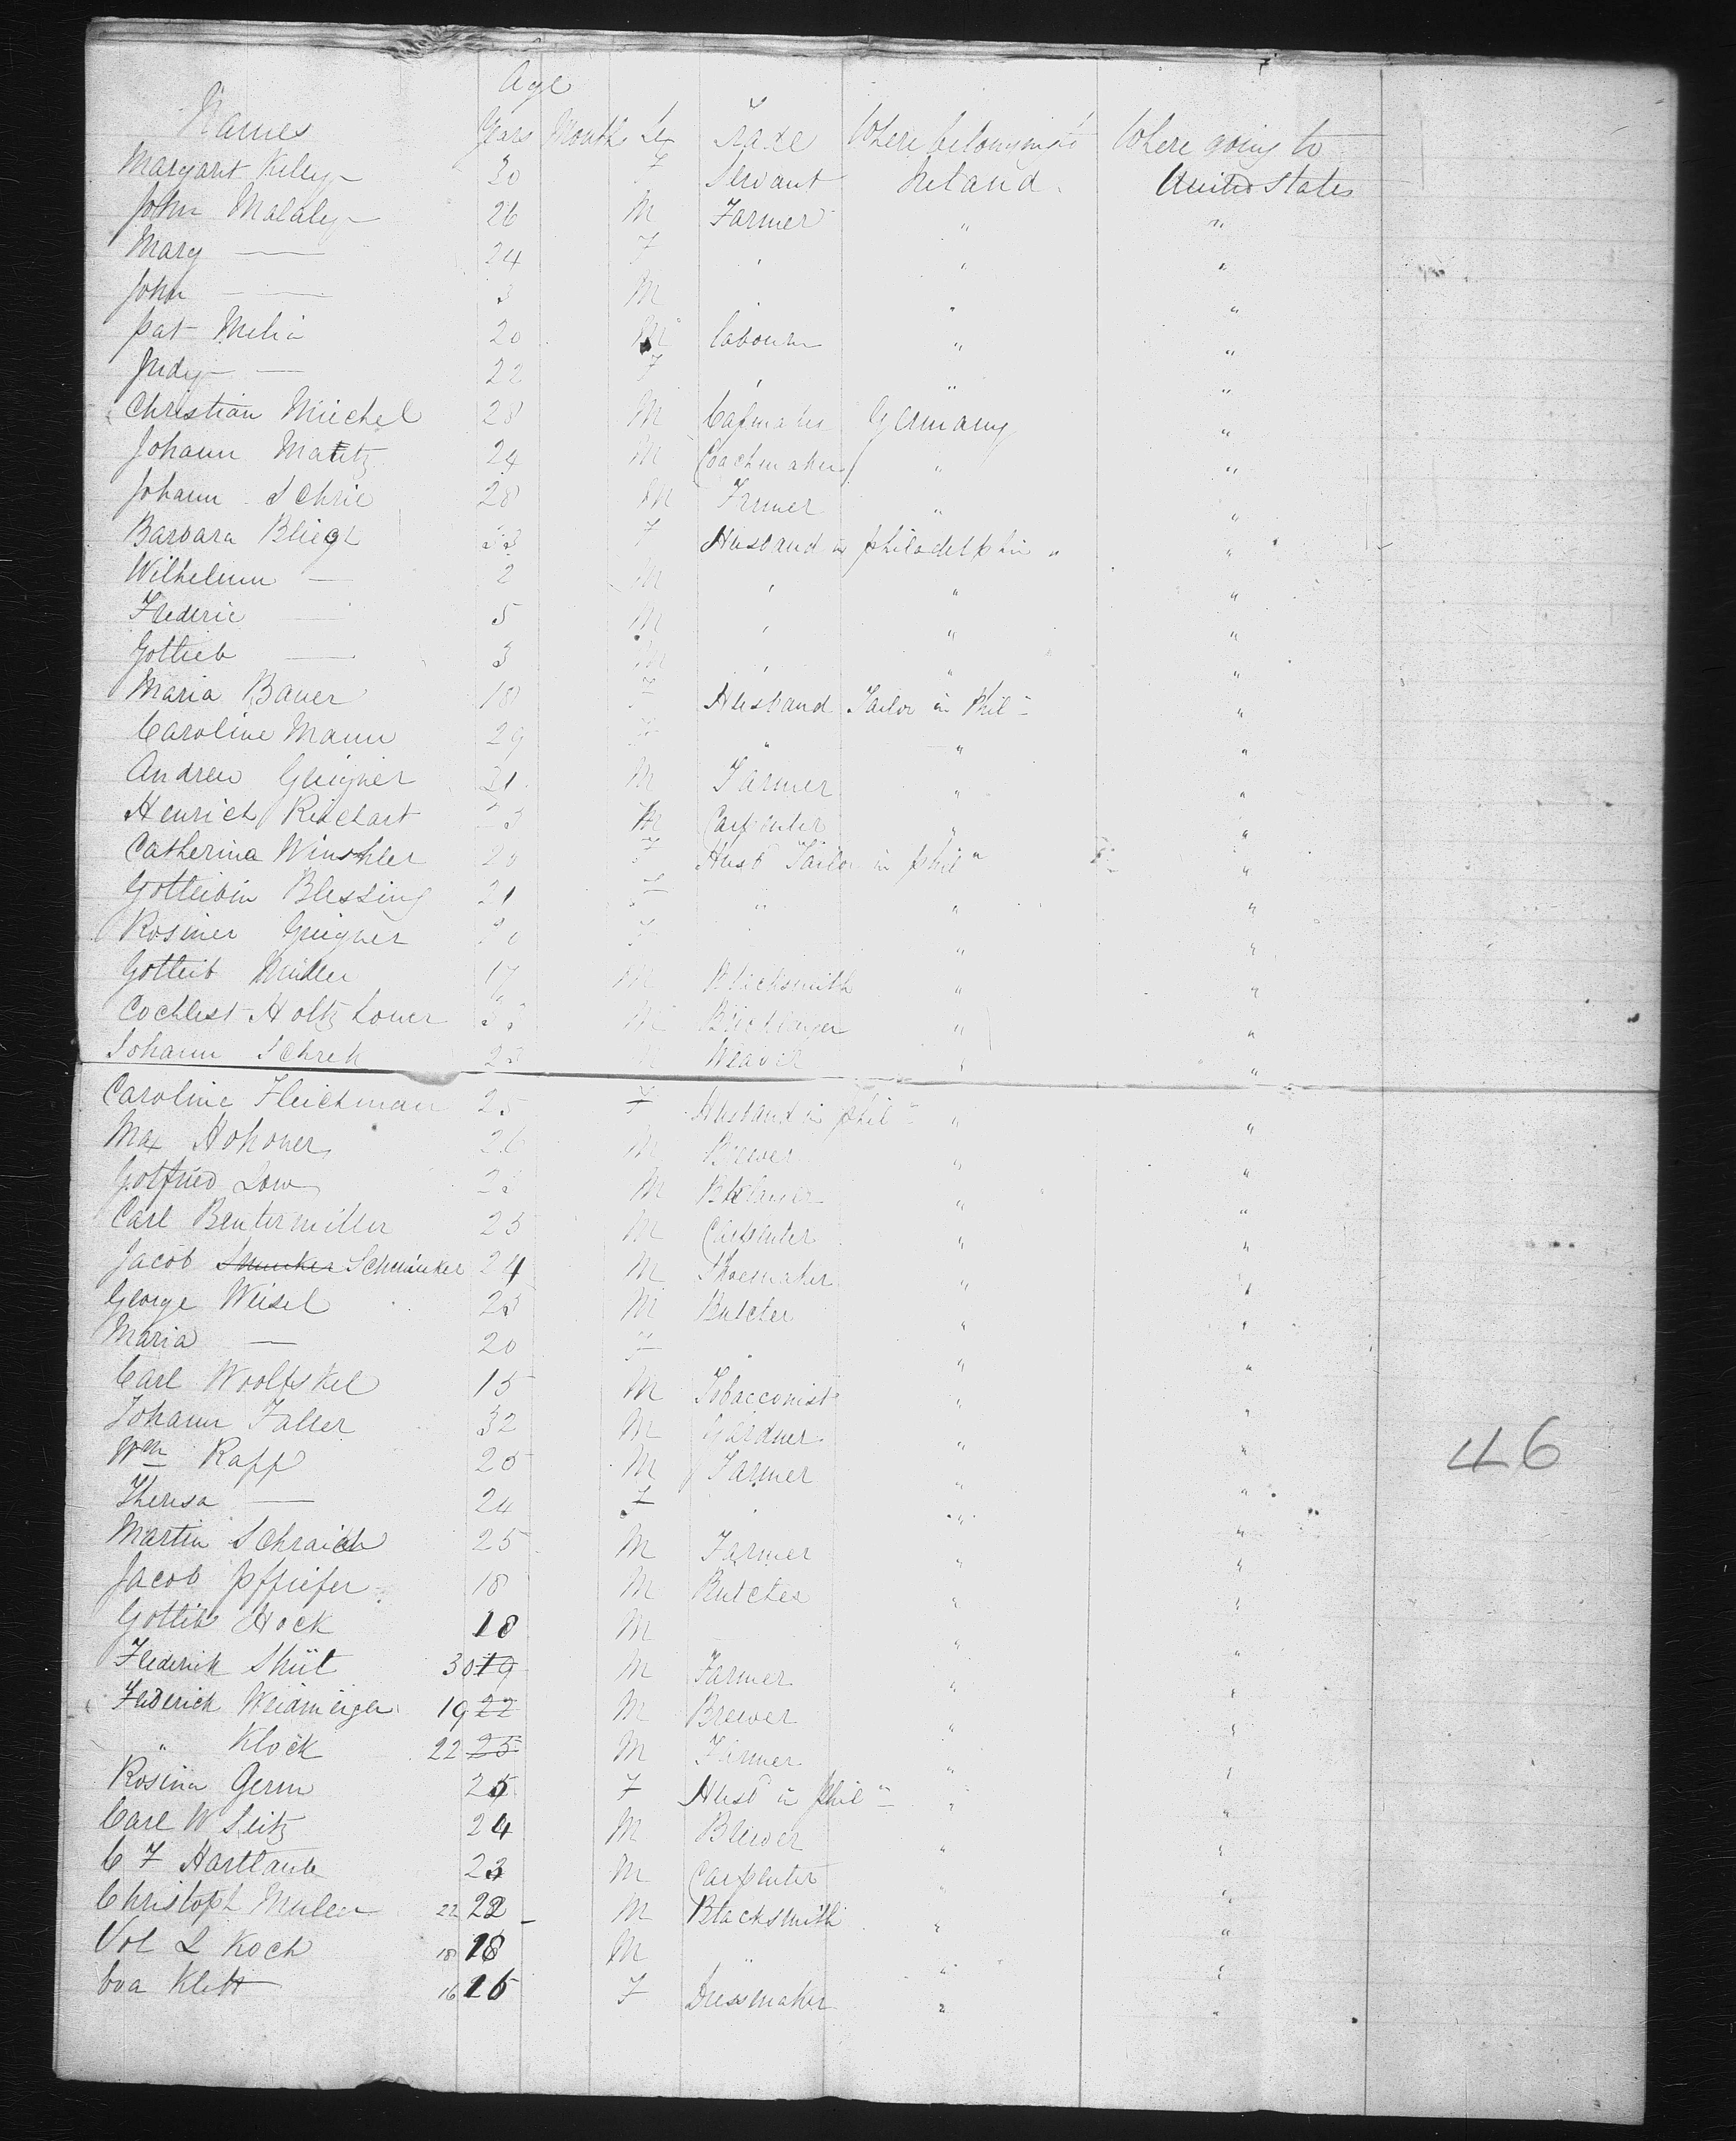 Age
Names Years Months Sex Trade Where belonging to Where going to
Margaret Kiley 30 F Servant Ireland United States
John Malaly 26 M Farmer " "
Mary — 24 F " " "
John — 3 M " " "
Pat Melia 20 M labourer " "
Judy — 22 F " " "
Christian Müichel 28 M Capmaker Germany "
Johann Mautz 24 M Coachmaker " "
Johann Schrie 28 M Farmer " "
Barbara Bliegt 33 F Husband in philadelphia " "
Wilhelmm — 2 M " " "
Frederic — 5 M " " "
Gottieb — 3 M " " "
Maria Bauer 18 F Husband Tailor in Phil "
Caroline Mann 29 F " " "
Andrew Gruigner 21 M Farmer " "
Henrich Riechart M Carpenter " "
Catherina Winshler 20 F Husd Tailor in phila "
Gotteibin Blessing 21 F " " "
Rosiner Gruigner F " "
Gotteib Müller 17 M Blacksmith " "
Cochlest Holtz Louer M " "
Johann Schreh M Weaver " "
Caroline Fleichman 25 F Husband in phil " "
Max Hohoner 26 M Brewer " "
Gotfried Low M " "
Carl Bentermiller 25 M Carpenter " "
Jacob Smunker Schmunker 24 M Shoemaker " "
George Weisel 25 M Butcher " "
Maria — 20 F " " "
Carl Woolfskel 15 M Tobacconist " "
Johann Faller 32 M Gardner " "
Wm Rapp 25 M Farmer " "
Theresa — 24 F " " "
Martin Schraich 25 M Farmer " "
Jacob Pffiefer 18 M Butcher " "
Gottlib Hock 18 M " "
Frederick Shüt 30 19 M Farmer " "
Frederich Weidmeiger 19 22 M Brewer " "
" Klock 22 25 M Farmer " "
Rosina Germ 25 F Husd in phila " "
Carl W Seitz 24 M Brewer " "
C F Hartlaub 23 M Carpenter " "
Christoph Muller 22 22 M Blacksmith " "
Vol L Koch 18 18 M " " "
Eva Klett 16 16 F Dressmaker " "
46